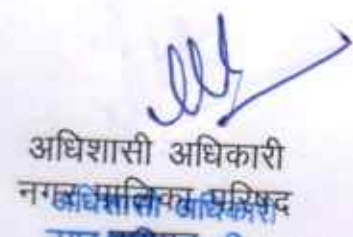 अधिशासी अधिकारी
नगर पालिका परिषद
अधिशासी अधिकारी
नगर